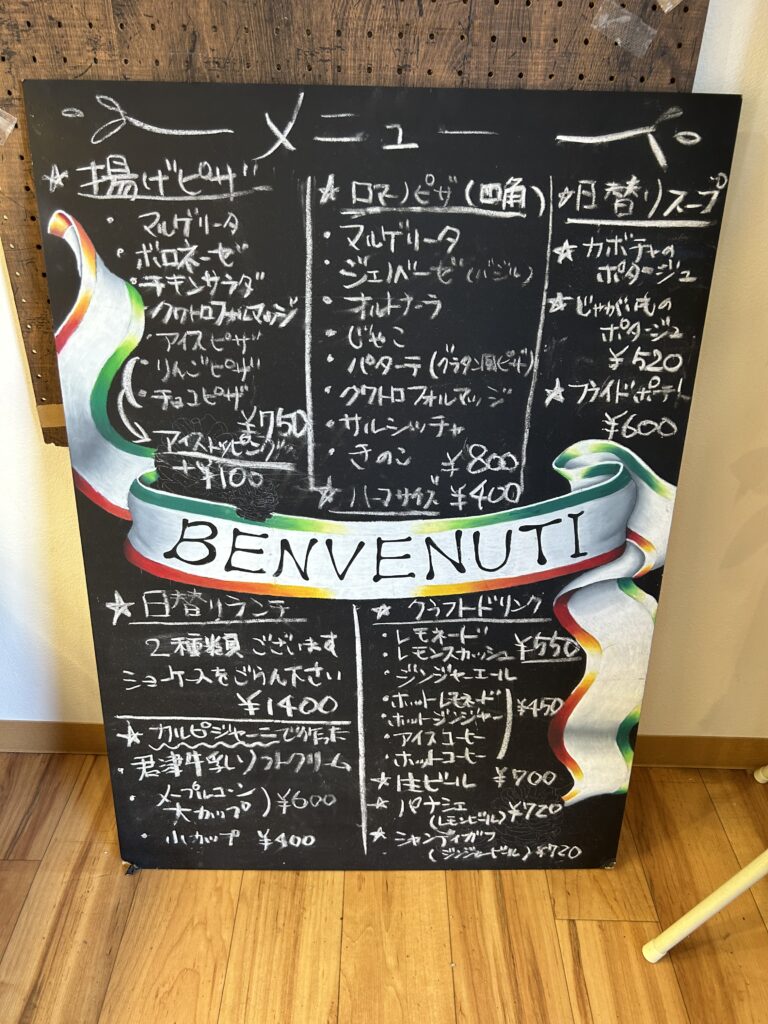 メニュー
☆揚げピザ
・マルゲリータ
・ボロネーゼ
・チキンサラダ
・クワトロフォルマッジ
・アイスピザ
・りんごピザ
・チョコピザ
¥750
アイストッピング
+¥100
☆ロマーノピザ(四角)
・マルゲリータ
・ジェノベーゼ(バジル)
・オルトナーラ
・じゃこ
・パターテ(グラタン風ピザ)
・クワトロフォルマッジ
・サルシッチャ
・きのこ ¥800
☆ハーフサイズ ¥400
☆日替りスープ
☆カボチャの
ポタージュ
☆じゃがいもの
ポタージュ
¥520
☆フライドポテト
¥600
BENVENUTI
☆日替りランチ
2種類ございます
ショーケースをごらん下さい
¥1400
☆カルピジャーニで作った
・君津牛乳ソフトクリーム
・メープルコーン
大カップ)¥600
・小カップ ¥400
☆クラフトドリンク
・レモネード
・レモンスカッシュ ¥550
・ジンジャーエール
・ホットレモネード
・ホットジンジャー ¥450
・アイスコーヒー
・ホットコーヒー
☆生ビール ¥700
☆パナシェ
(レモンビール) ¥720
☆シャンディガフ
(ジンジャービール) ¥720